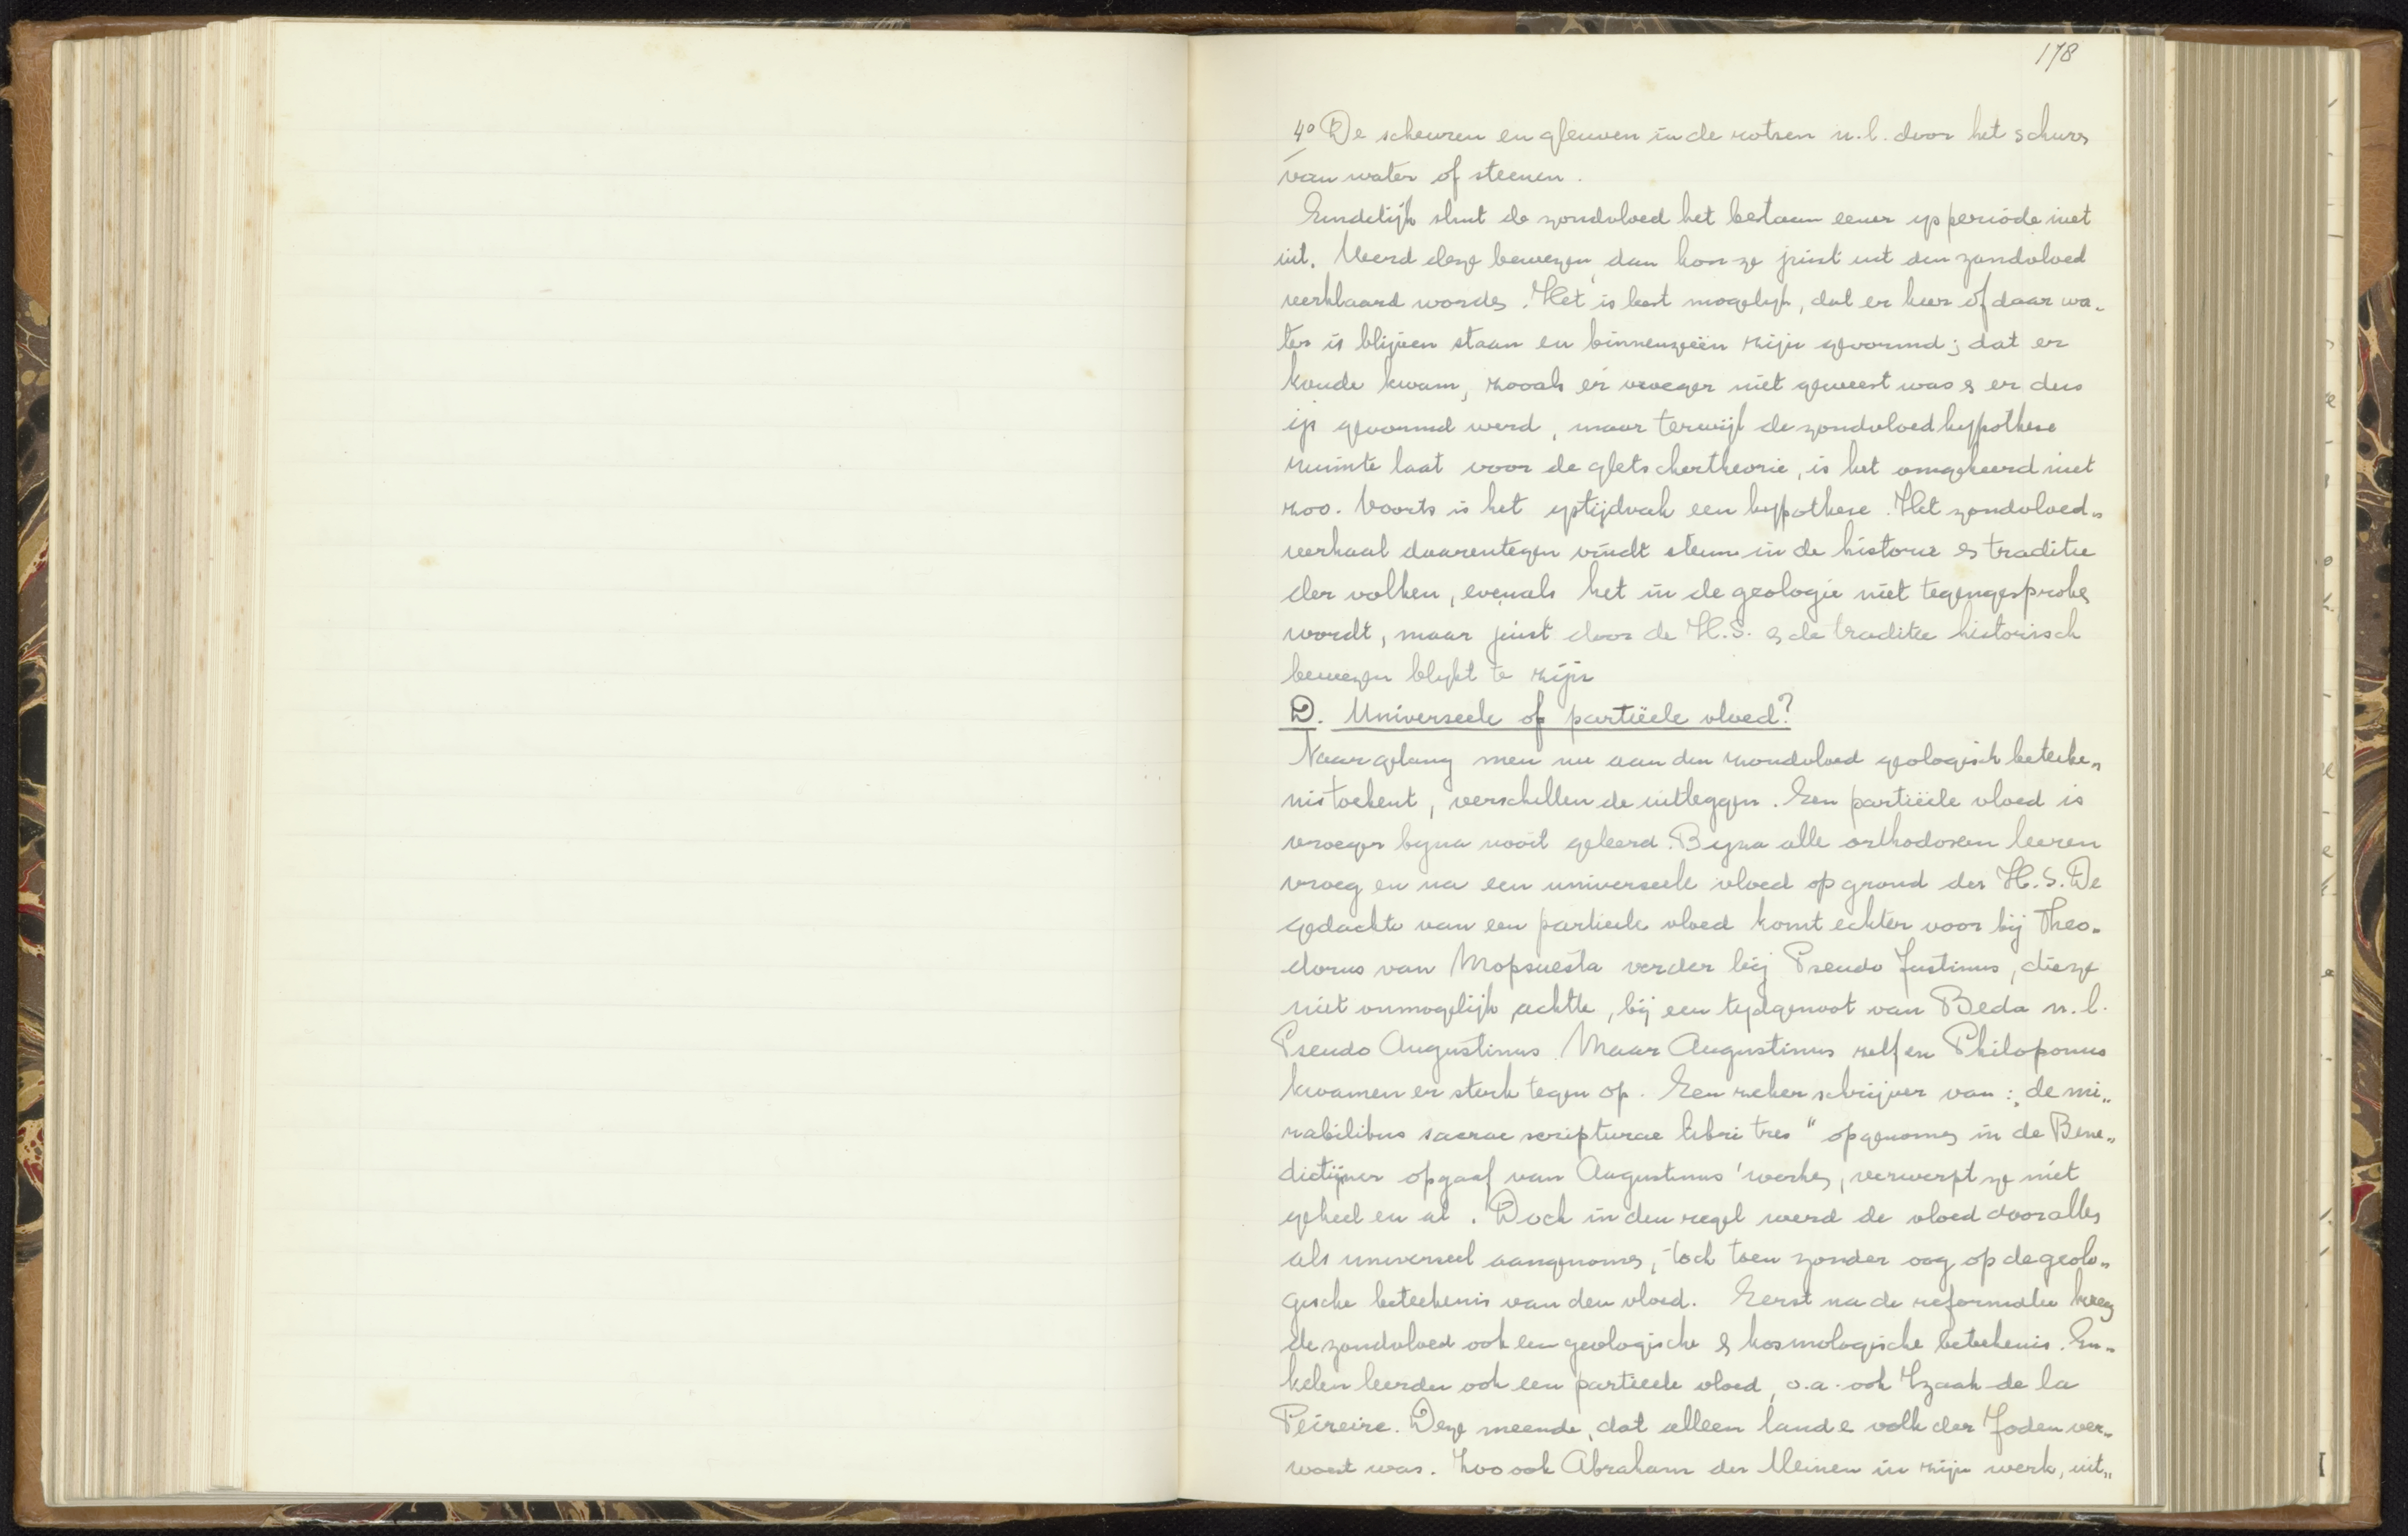 178
4º De scheuren en gleuven in de rotsen n.l. door het schure
van water of steenen.
Eindelijk sluit de zondvloed het bestaan eener ijsperiode niet
uit. Werd deze bewezen, dan kon ze juist uit den zondvloed
verklaard worden. Het is best mogelijk, dat er hier of daar wa-
ter is blijven staan en binnenzeeën zijn gevormd; dat er
koude kwam, zooals er vroeger niet geweest was & er dus
ijs gevormd werd, maar terwijl de zondvloedhypothese
ruimte laat voor de gletschertheorie, is het omgekeerd niet
zoo. Voorts is het ijstijdvak een hypothese. Het zondvloed-
verhaal daarentegen vindt steun in de historie & traditie
der volken, evenals het in de geologie niet tegengesproken
wordt, maar juist door de H.S. & de traditie historisch
bewezen blijkt te zijn
D. Universeele of partiëele vloed?
Naar gelang men nu aan den zondvloed geologisch beteeke-
nis toekent, verschillen de uitleggen. Een partiëele vloed is
vroeger bijna nooit geleerd. Bijna alle orthodoxen leeren
vroeg en na een universeele vloed op grond der H.S. De
gedachte van een partieele vloed komt echter voor bij Theo-
dorus van Mopsuesta verder bij Pseudo Justinus, die ze
niet onmogelijk achtte, bij een tijdgenoot van Beda n.l.
Pseudo Augustinus. Maar Augustinus zelf en Philoponus
kwamen er sterk tegen op. Een zeker schrijver van: „de mi-
rabilibus sacrae scripturae libri tres" opgenomen in de Bene-
dictijner opgaaf van Augustinus' werken, verwerpt ze niet
geheel en al. Doch in den regel werd de vloed door allen
als universeel aangenomen, toch toen zonder oog op de geolo-
gische beteekenis van den vloed. Eerst na de reformatie kreeg
de zondvloed ook een geologische & kosmologische beteekenis. En-
kelen leerden ook een partieele vloed, o.a. ook Izaak de la
Peireire. Deze meende, dat alleen land & volk der Joden ver-
woest was. Zoo ook Abraham der Meinen in zijn werk, uit-